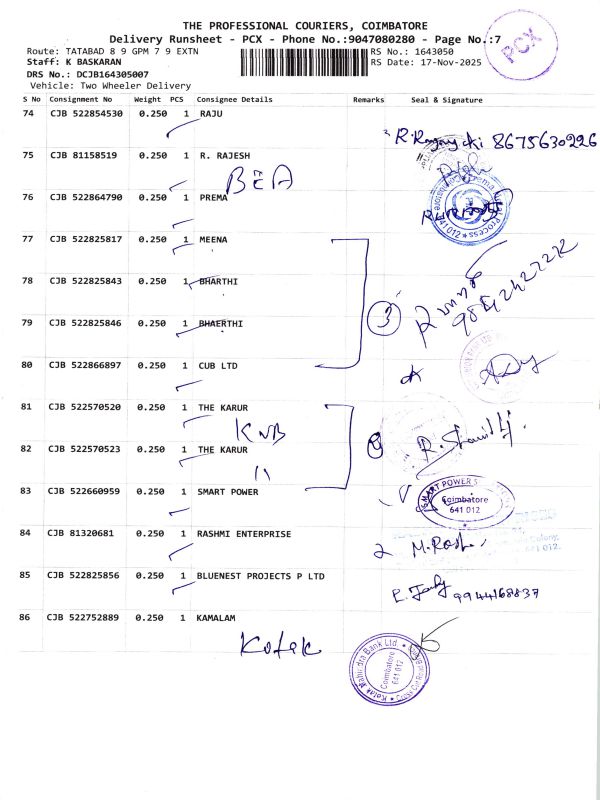 THE PROFESSIONAL COURIERS, COIMBATORE
Delivery Runsheet - PCX - Phone No.:9047080280 - Page No.:7
PCX
Route: TATABAD 8 9 GPM 7 9 EXTN
RS No.: 1643050
Staff: K BASKARAN
RS Date: 17-Nov-2025
DRS No.: DCJB164305007
Vehicle: Two Wheeler Delivery
S No Consignment No Weight PCS Consignee Details Remarks Seal & Signature
74 CJB 522854530 0.250 1 RAJU
8675630226
75 CJB 81158519 0.250 1 R. RAJESH
BEA
76 CJB 522864790 0.250 1 PREMA
641 012
77 CJB 522825817 0.250 1 MEENA
78 CJB 522825843 0.250 1 BHARTHI
3
79 CJB 522825846 0.250 1 BHAERTHI
80 CJB 522866897 0.250 1 CUB LTD
81 CJB 522570520 0.250 1 THE KARUR
KVB
82 CJB 522570523 0.250 1 THE KARUR
11
83 CJB 522660959 0.250 1 SMART POWER
SMART POWER
Coimbatore
641 012
84 CJB 81320681 0.250 1 RASHMI ENTERPRISE
85 CJB 522825856 0.250 1 BLUENEST PROJECTS P LTD
9944168837
86 CJB 522752889 0.250 1 KAMALAM
Kotak
Kotak Mahindra Bank Ltd.
Coimbatore
641 012